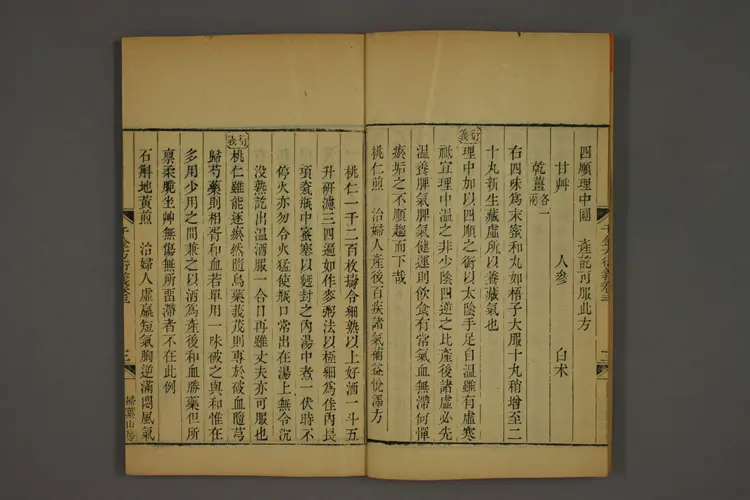 四順理中圓　產訖可服此方
甘艸　人參　白术
乾薑各一兩
右四味爲末蜜和丸如梧子大服十丸稍增至二
十丸新生藏虛所以養藏氣也
衍義
理中加以四順之銜以太陰手足自溫雖有虛寒
祗宜理中溫之非少陰四逆之比產後諸虛必先
溫養脾氣脾氣健運則飲食有常氣血無滯何憚
瘀垢之不順趨而下哉
桃仁煎　治婦人產後百疾諸氣補益悅澤方
桃仁一千二百枚擣令細熟以上好酒一斗五
升研濾三四遍如作麥粥法以極細爲佳內長
項瓷瓶中蜜塞以麪封之內湯中煮一伏時不
停火亦勿令火猛使瓶口常出在湯上無令沉
沒熟訖出溫酒服一合日再雖丈夫亦可服也
衍義
桃仁雖能逐瘀然隨烏藥莪茂則專於破血隨芎
歸芍藥則相胥和血若單用一味破之與和惟在
多用少用之間兼之以酒爲產後和血勝藥但所
禀柔脆坐艸無傷無所畱滯者不在此例
石斛地黃煎　治婦人虛羸短氣胸逆滿悶風氣
千金方衍義卷三
三
掃葉山房